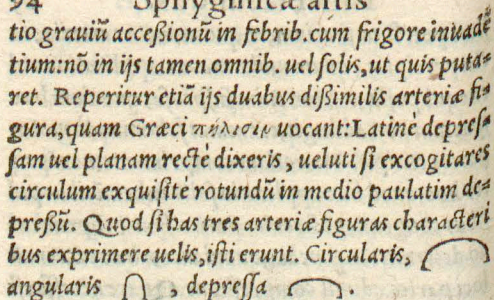 94 Sphygmicæ artis
tio grauiũ acceßionũ in febrib. cum frigore inuadẽ
tium: nõ in ijs tamen omnib. uel solis, ut quis puta-
ret. Reperitur etiã ijs duabus dißimilis arteriæ fi-
gura, quam Græci uocant: Latinè depres-
sam uel planam rectè dixeris, ueluti si excogitares
circulum exquisitè rotundũ in medio paulatim de-
preßũ. Quod si has tres arteriæ figuras characteri
bus exprimere uelis, isti erunt. Circularis,
angularis , depressa .